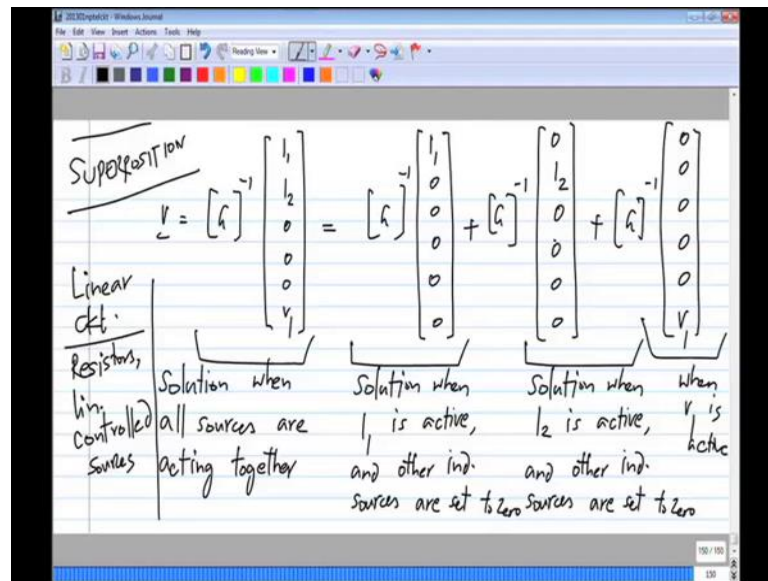 20130nptelckt - Windows Journal
File Edit View Insert Actions Tools Help
Reading View
B I
SUPERPOSITION
v = [G]⁻¹ [I₁ I₂ 0 0 0 V₁] = [G]⁻¹ [I₁ 0 0 0 0 0] + [G]⁻¹ [0 I₂ 0 0 0 0] + [G]⁻¹ [0 0 0 0 0 V₁]
Linear
ckt.
Resistors,
lin.
controlled
sources
Solution when
all sources are
acting together
Solution when
I₁ is active,
and other ind.
sources are set to zero
Solution when
I₂ is active,
and other ind.
sources are set to zero
when
V₁ is
active
150 / 150
150